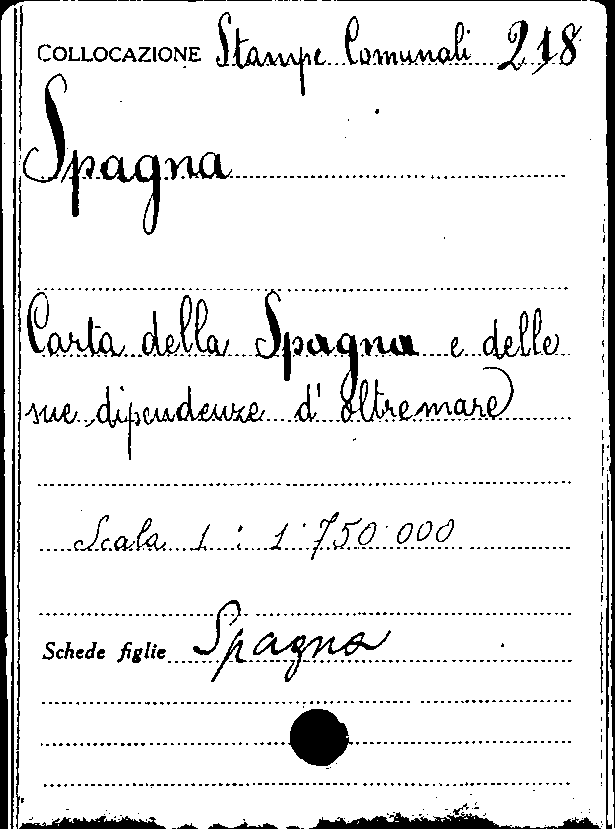 COLLOCAZIONE Stampe Comunali 218
Spagna
Carta della Spagna e delle
sue dipendenze d'oltremare
Scala 1 : 1·750·000
Schede figlie Spagna